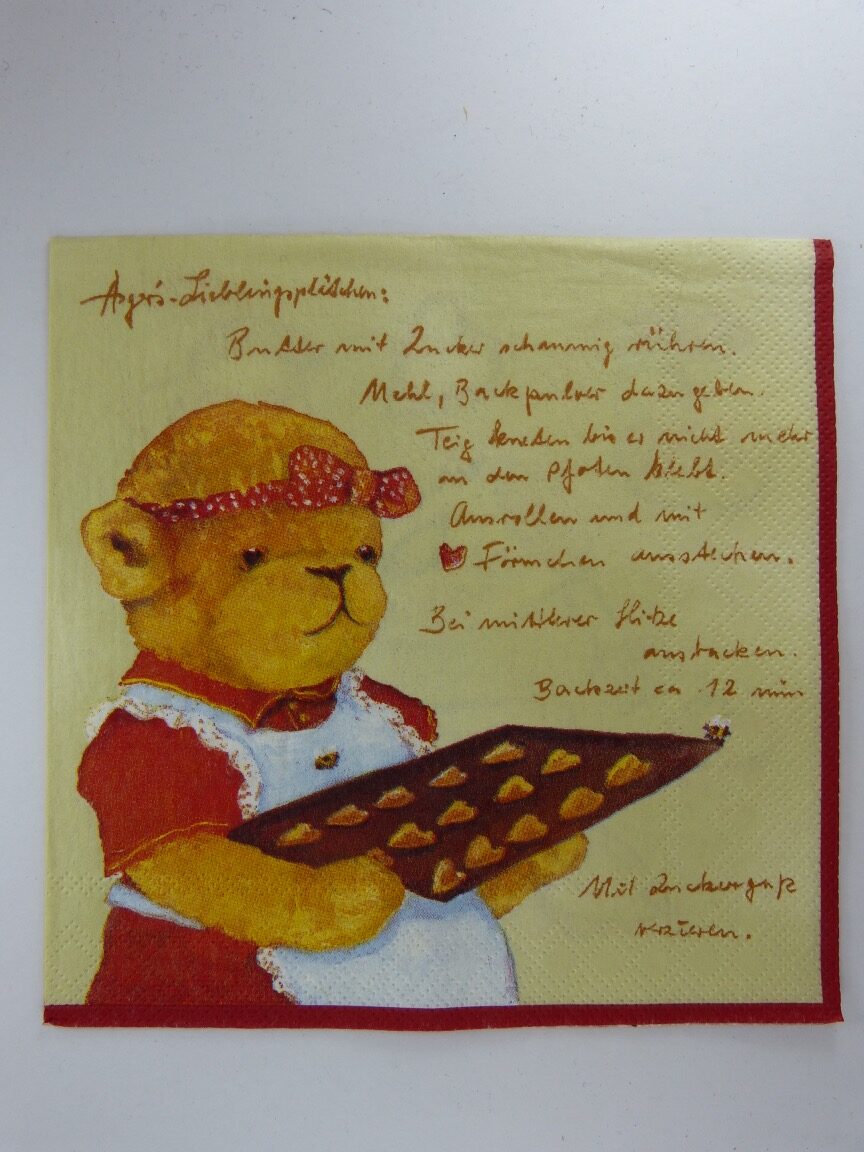 Lieblingsplätzchen:
Butter mit Zucker schaumig rühren.
Mehl, Backpulver dazu geben.
Teig kneten bis er nicht mehr
an den Pfoten klebt.
Ausrollen und mit
Förmchen ausstechen.
Bei mittlerer Hitze
ausbacken.
Backzeit ca 12 min
Mit Zuckerguß
verzieren.